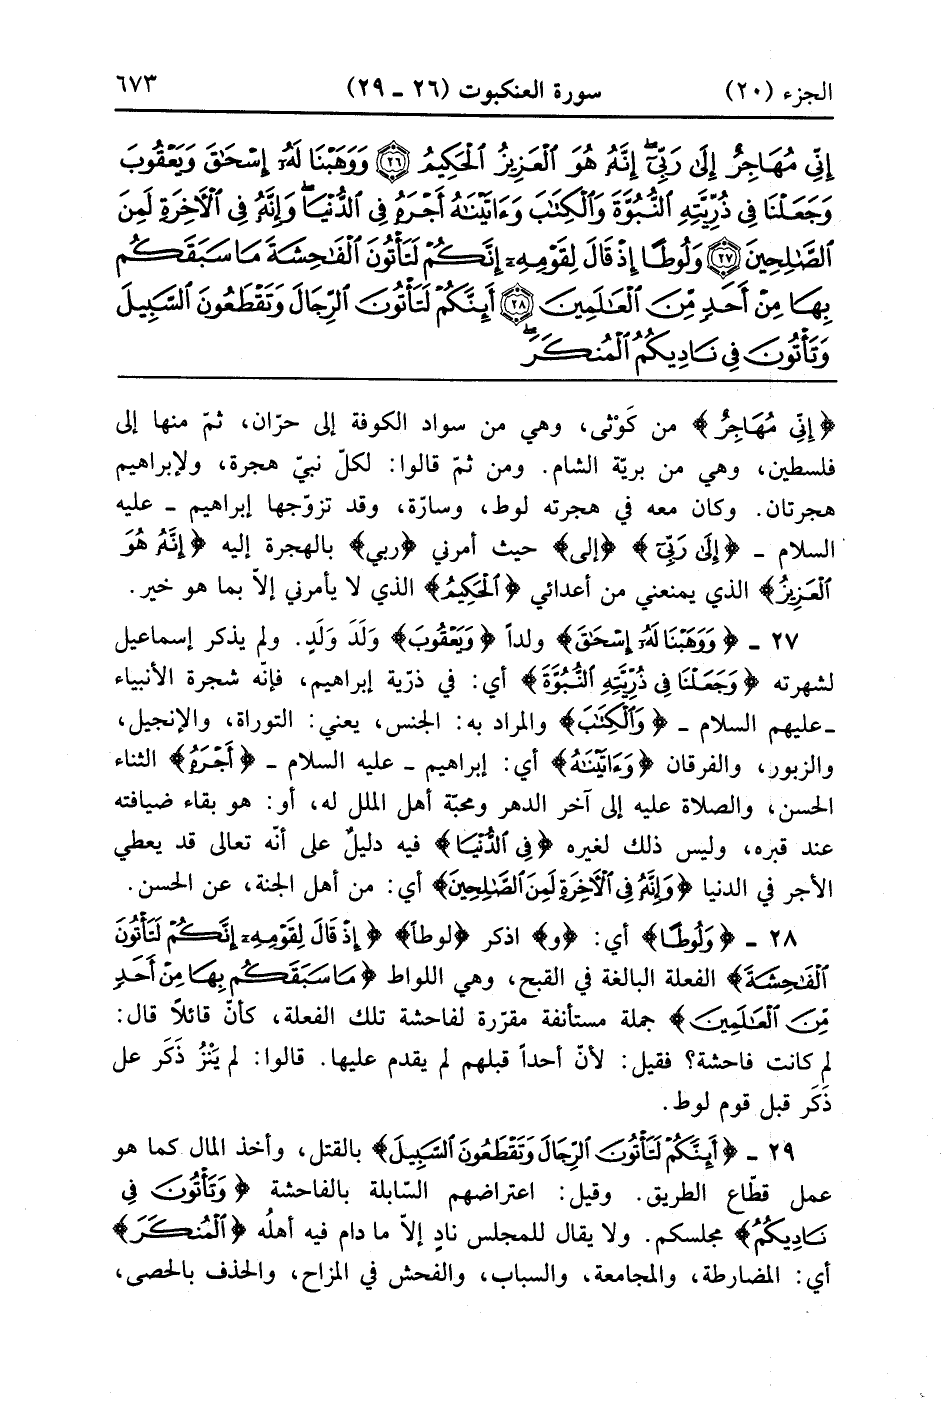 الجزء (٢٠) سورة العنكبوت (٢٦ ـ ٢٩) ٦٧٣
إِنِّي مُهَاجِرٌ إِلَىٰ رَبِّيٓۖ إِنَّهُۥ هُوَ ٱلْعَزِيزُ ٱلْحَكِيمُ ﴿٢٦﴾ وَوَهَبْنَا لَهُۥٓ إِسْحَٰقَ وَيَعْقُوبَ
وَجَعَلْنَا فِي ذُرِّيَّتِهِ ٱلنُّبُوَّةَ وَٱلْكِتَٰبَ وَءَاتَيْنَٰهُ أَجْرَهُۥ فِي ٱلدُّنْيَاۖ وَإِنَّهُۥ فِي ٱلْأَخِرَةِ لَمِنَ
ٱلصَّٰلِحِينَ ﴿٢٧﴾ وَلُوطًا إِذْ قَالَ لِقَوْمِهِۦٓ إِنَّكُمْ لَتَأْتُونَ ٱلْفَٰحِشَةَ مَا سَبَقَكُم
بِهَا مِنْ أَحَدٍ مِّنَ ٱلْعَٰلَمِينَ ﴿٢٨﴾ أَئِنَّكُمْ لَتَأْتُونَ ٱلرِّجَالَ وَتَقْطَعُونَ ٱلسَّبِيلَ
وَتَأْتُونَ فِي نَادِيكُمُ ٱلْمُنكَرَۖ
﴿إِنِّي مُهَاجِرٌ﴾ من كَوْثى، وهي من سواد الكوفة إلى حرّان، ثمّ منها إلى
فلسطين، وهي من بريّة الشام. ومن ثمّ قالوا: لكلّ نبيّ هجرة، ولإبراهيم
هجرتان. وكان معه في هجرته لوط، وسارّة، وقد تزوّجها إبراهيم ـ عليه
السلام ـ ﴿إِلَىٰ رَبِّيٓ﴾ ﴿إلى﴾ حيث أمرني ﴿ربي﴾ بالهجرة إليه ﴿إِنَّهُۥ هُوَ
ٱلْعَزِيزُ﴾ الذي يمنعني من أعدائي ﴿ٱلْحَكِيمُ﴾ الذي لا يأمرني إلاّ بما هو خير.
٢٧ ـ ﴿وَوَهَبْنَا لَهُۥٓ إِسْحَٰقَ﴾ ولداً ﴿وَيَعْقُوبَ﴾ وَلَدَ وَلَدٍ. ولم يذكر إسماعيل
لشهرته ﴿وَجَعَلْنَا فِي ذُرِّيَّتِهِ ٱلنُّبُوَّةَ﴾ أي: في ذرّية إبراهيم، فإنّه شجرة الأنبياء
ـ عليهم السلام ـ ﴿وَٱلْكِتَٰبَ﴾ والمراد به: الجنس، يعني: التوراة، والإنجيل،
والزبور، والفرقان ﴿وَءَاتَيْنَٰهُ﴾ أي: إبراهيم ـ عليه السلام ـ ﴿أَجْرَهُۥ﴾ الثناء
الحسن، والصلاة عليه إلى آخر الدهر ومحبّة أهل الملل له، أو: هو بقاء ضيافته
عند قبره، وليس ذلك لغيره ﴿فِي ٱلدُّنْيَا﴾ فيه دليلٌ على أنّه تعالى قد يعطي
الأجر في الدنيا ﴿وَإِنَّهُۥ فِي ٱلْأَخِرَةِ لَمِنَ ٱلصَّٰلِحِينَ﴾ أي: من أهل الجنة، عن الحسن.
٢٨ ـ ﴿وَلُوطًا﴾ أي: ﴿و﴾ اذكر ﴿لوطاً﴾ ﴿إِذْ قَالَ لِقَوْمِهِۦٓ إِنَّكُمْ لَتَأْتُونَ
ٱلْفَٰحِشَةَ﴾ الفعلة البالغة في القبح، وهي اللواط ﴿مَا سَبَقَكُم بِهَا مِنْ أَحَدٍ
مِّنَ ٱلْعَٰلَمِينَ﴾ جملة مستأنفة مقرّرة لفاحشة تلك الفعلة، كأنّ قائلاً قال:
لم كانت فاحشة؟ فقيل: لأنّ أحداً قبلهم لم يقدم عليها. قالوا: لم يَنْزُ ذَكَر على
ذَكَر قبل قوم لوط.
٢٩ ـ ﴿أَئِنَّكُمْ لَتَأْتُونَ ٱلرِّجَالَ وَتَقْطَعُونَ ٱلسَّبِيلَ﴾ بالقتل، وأخذ المال كما هو
عمل قطّاع الطريق. وقيل: اعتراضهم السّابلة بالفاحشة ﴿وَتَأْتُونَ فِي
نَادِيكُمُ﴾ مجلسكم. ولا يقال للمجلس نادٍ إلاّ ما دام فيه أهلُه ﴿ٱلْمُنكَرَ﴾
أي: المضارطة، والمجامعة، والسباب، والفحش في المزاح، والحذف بالحصى،